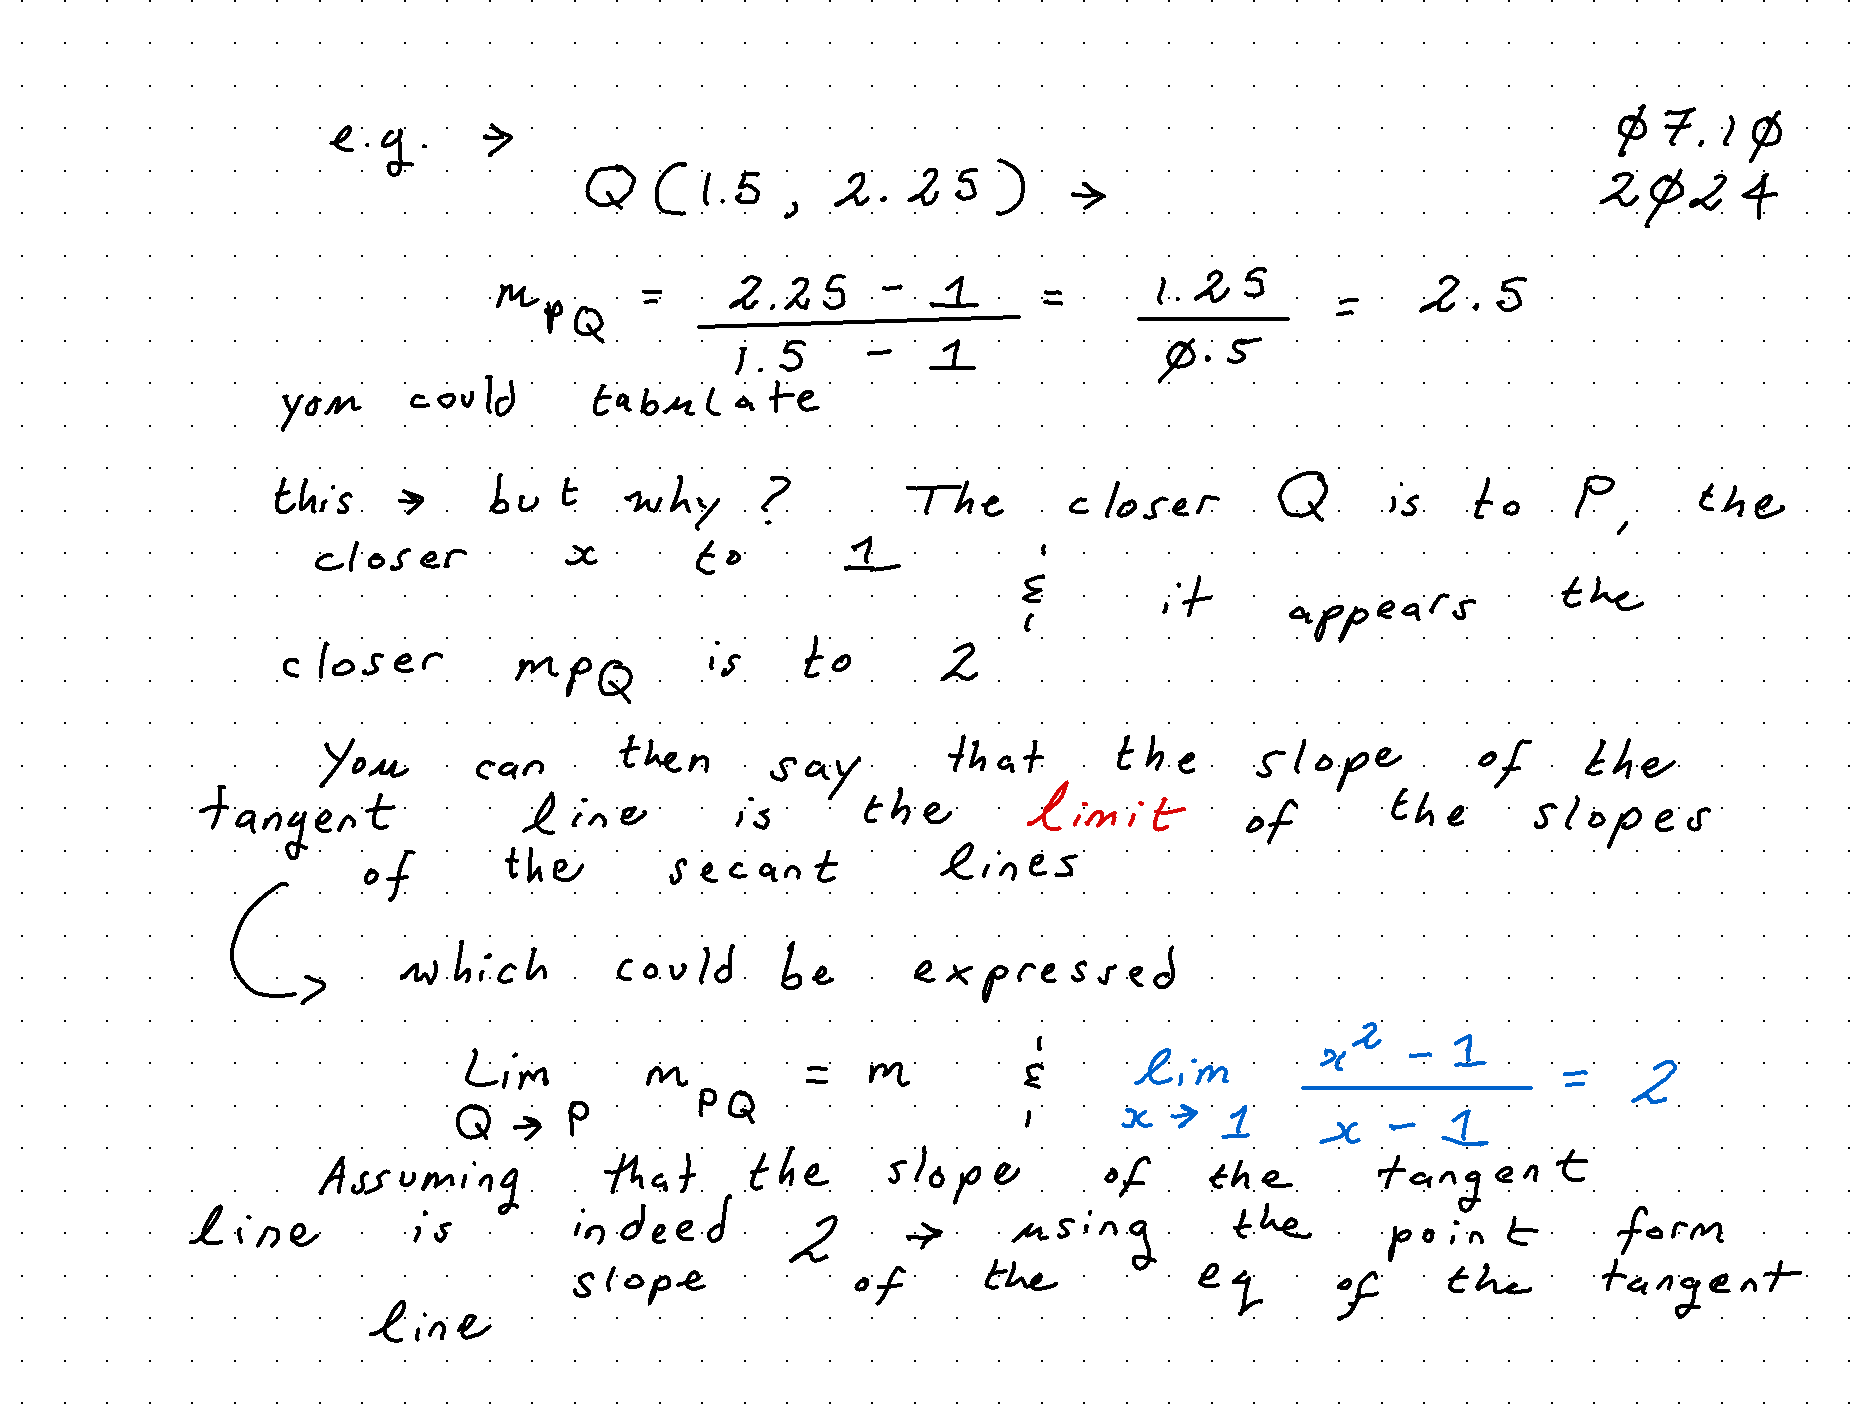 e.g. →
ø7.1ø
Q(1.5, 2.25) →
2ø24
m_PQ = (2.25 - 1)/(1.5 - 1) = 1.25/ø.5 = 2.5
you could tabulate
this → but why? The closer Q is to P, the
closer x to 1 & it appears the
closer m_PQ is to 2
You can then say that the slope of the
tangent line is the limit of the slopes
of the secant lines
which could be expressed
Lim Q → P m_PQ = m & lim x → 1 (x² - 1)/(x - 1) = 2
Assuming that the slope of the tangent
line is indeed 2 → using the point form
slope of the eq of the tangent
line